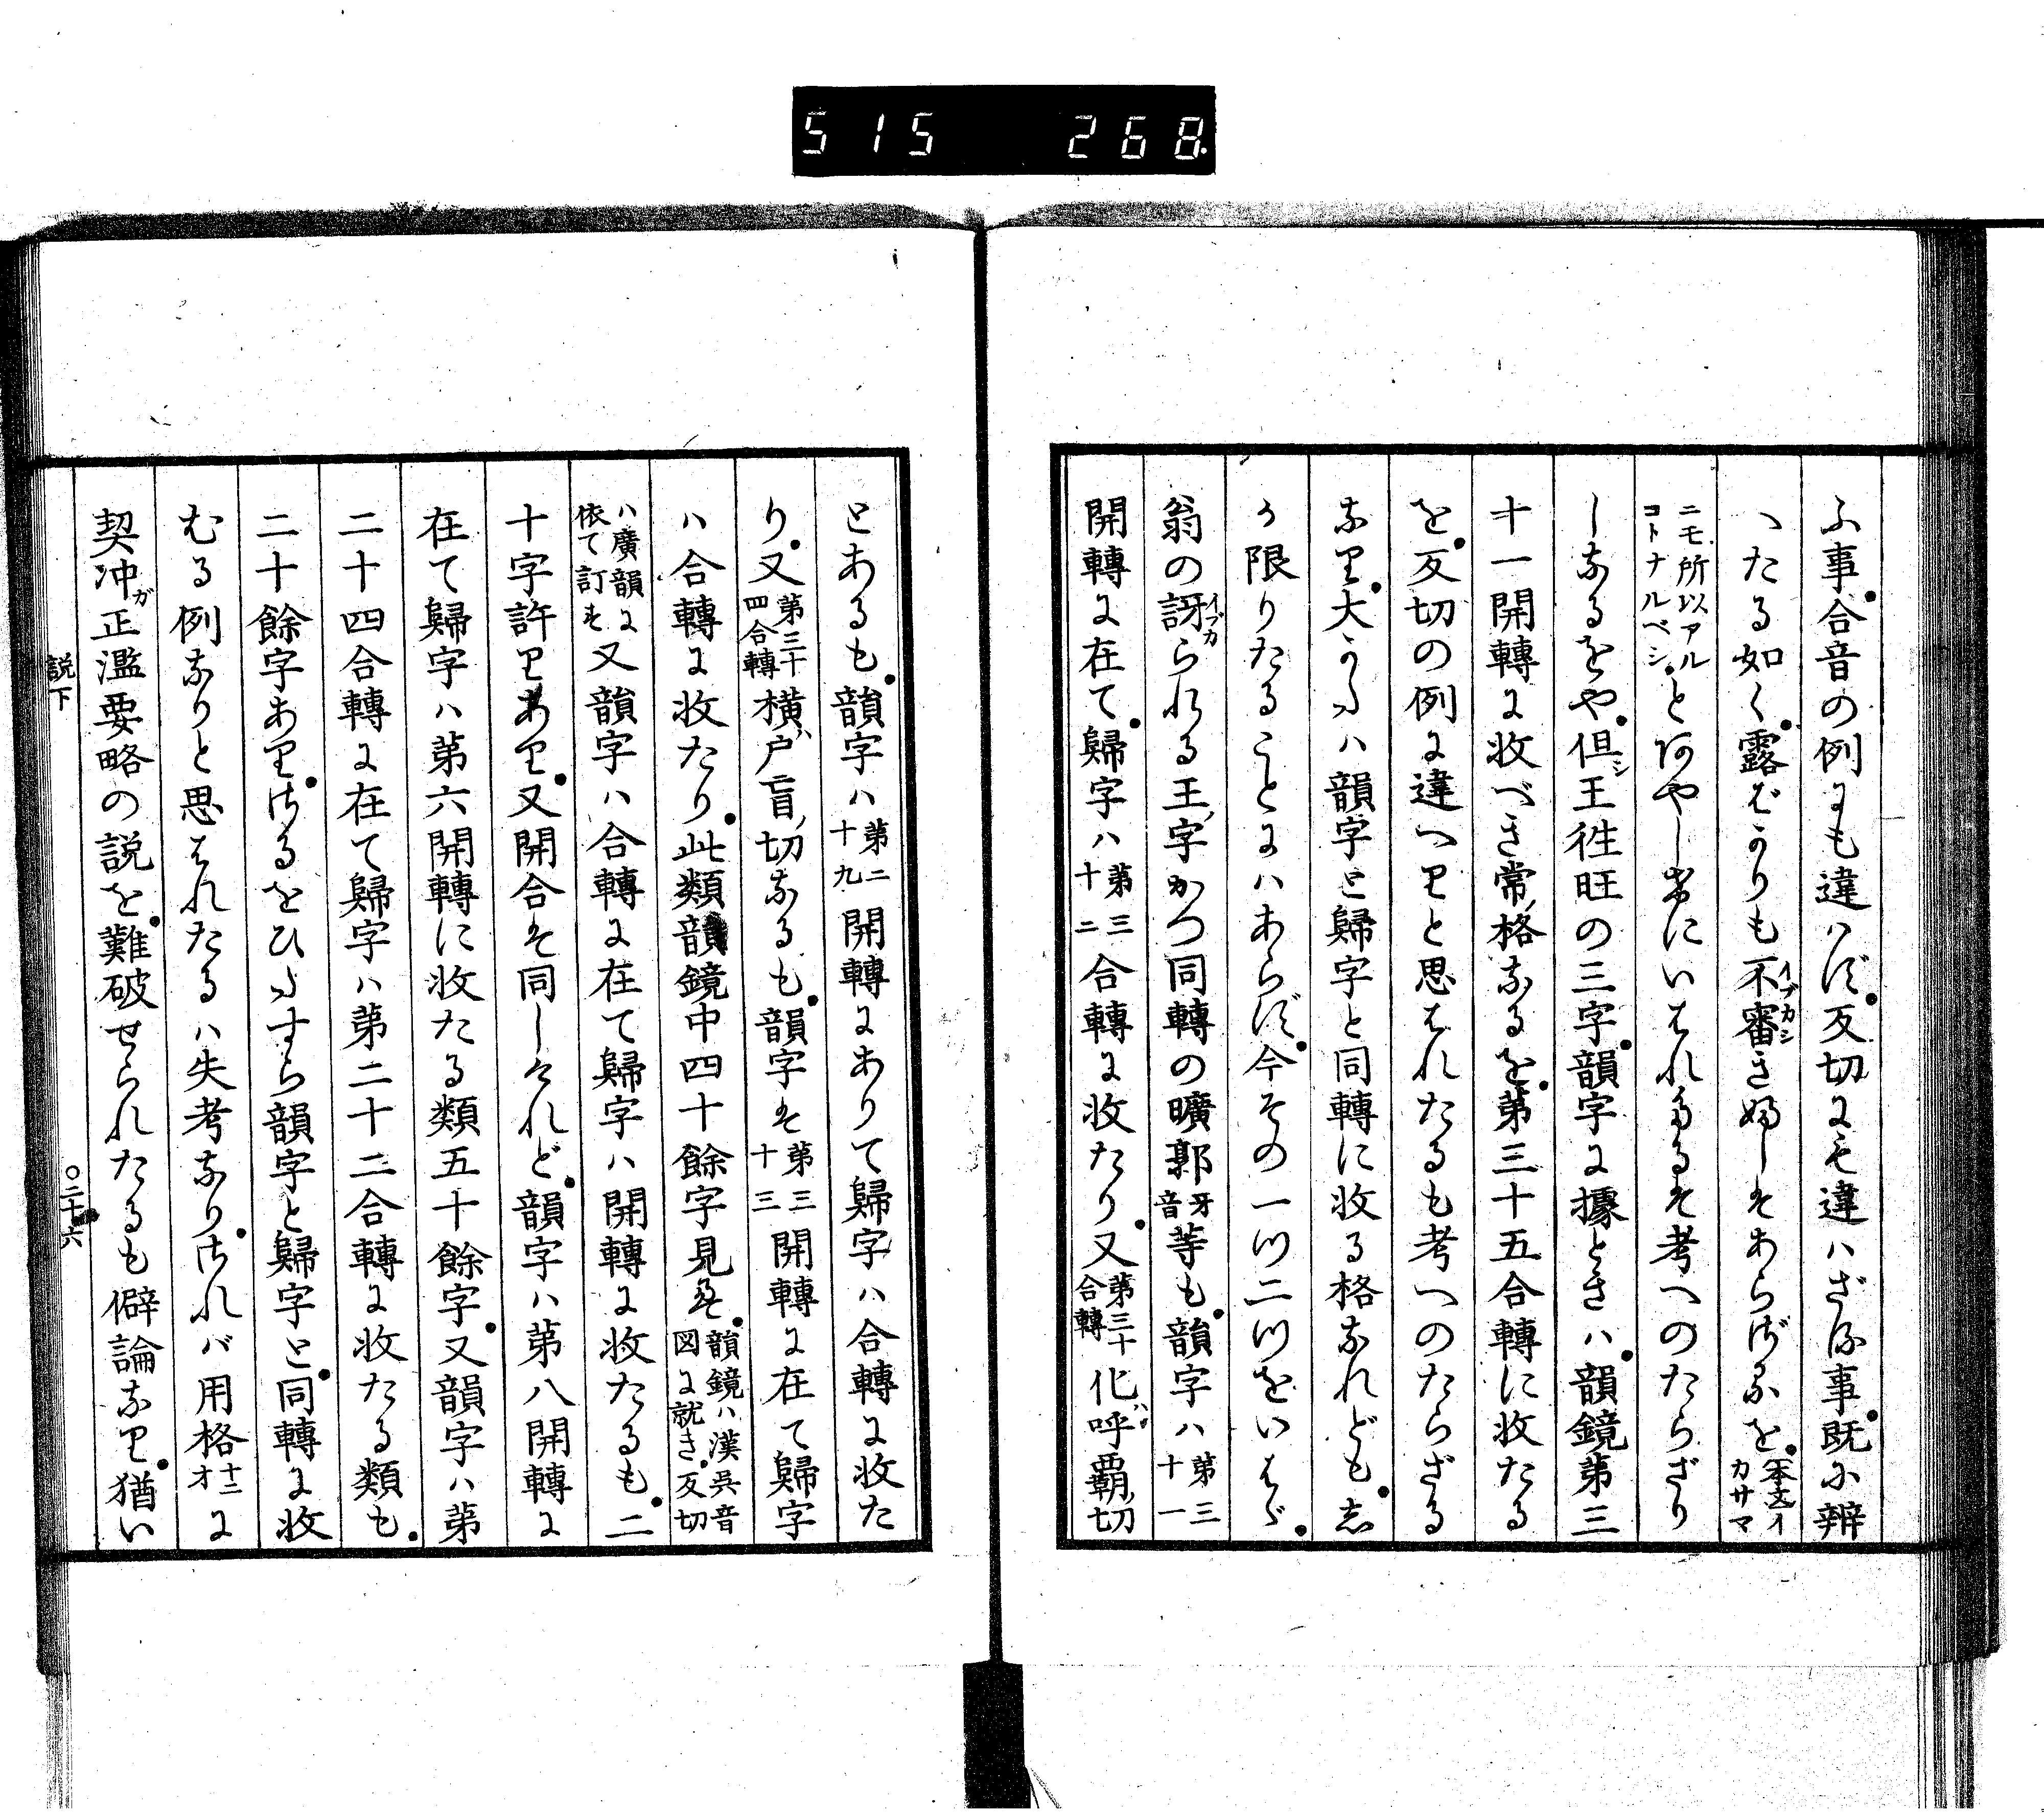 515 268
ふ事。合音の例にも違ハず。反切にも違ハざる事。既に辨
へたる如く。露ばかりも不審(イブカシ)き娜しそあらざるを。本文イカサマ
ニモ所以アルコトナルベシ。とあやしげにいはれたるは考へのたらざり
しなるをや。但(シ)王徃旺の三字。韻字に據ときハ。韻鏡第三
十一開轉に收べき常格なるを。第三十五合轉に收たる
を。反切の例に違へりと思はれたるも考へのたらざる
なり。大かたハ韻字と歸字と同轉に收る格なれども。志
か限りたることにハあらず。今その一ツ二ツをいはゞ。
翁の訝(イブカ)られる王ノ字かつ同轉の曠郭牙音等も。韻字ハ第三十一
開轉に在て。歸字ハ第三十二合轉に收たり。又第三十合轉化ハ呼覇ノ切
とあるも。韻字ハ第二十九開轉にありて歸字ハ合轉に收た
り。又第三十四合轉横ハ戸盲ノ切なるも。韻字は第三十三開轉に在て歸字
ハ合轉に收たり。此類韻鏡中四十餘字見ゆ。韻鏡ハ漢呉音図に就き。反切
ハ廣韻に依て訂す又韻字ハ合轉に在て歸字ハ開轉に收たるも。二
十字許りあり。又開合は同しけれど。韻字ハ第八開轉に
在て歸字ハ第六開轉に收たる類五十餘字。又韻字ハ第
二十四合轉に在て歸字ハ第二十二合轉に收たる類も。
二十餘字あり。さるをひたすら韻字と歸字と。同轉に收
むる例なりと思はれたるハ失考なり。されバ用格十二オに
契冲ガ正濫要略の説を。難破せられたるも僻論なり。猶い
説下
〇二十六